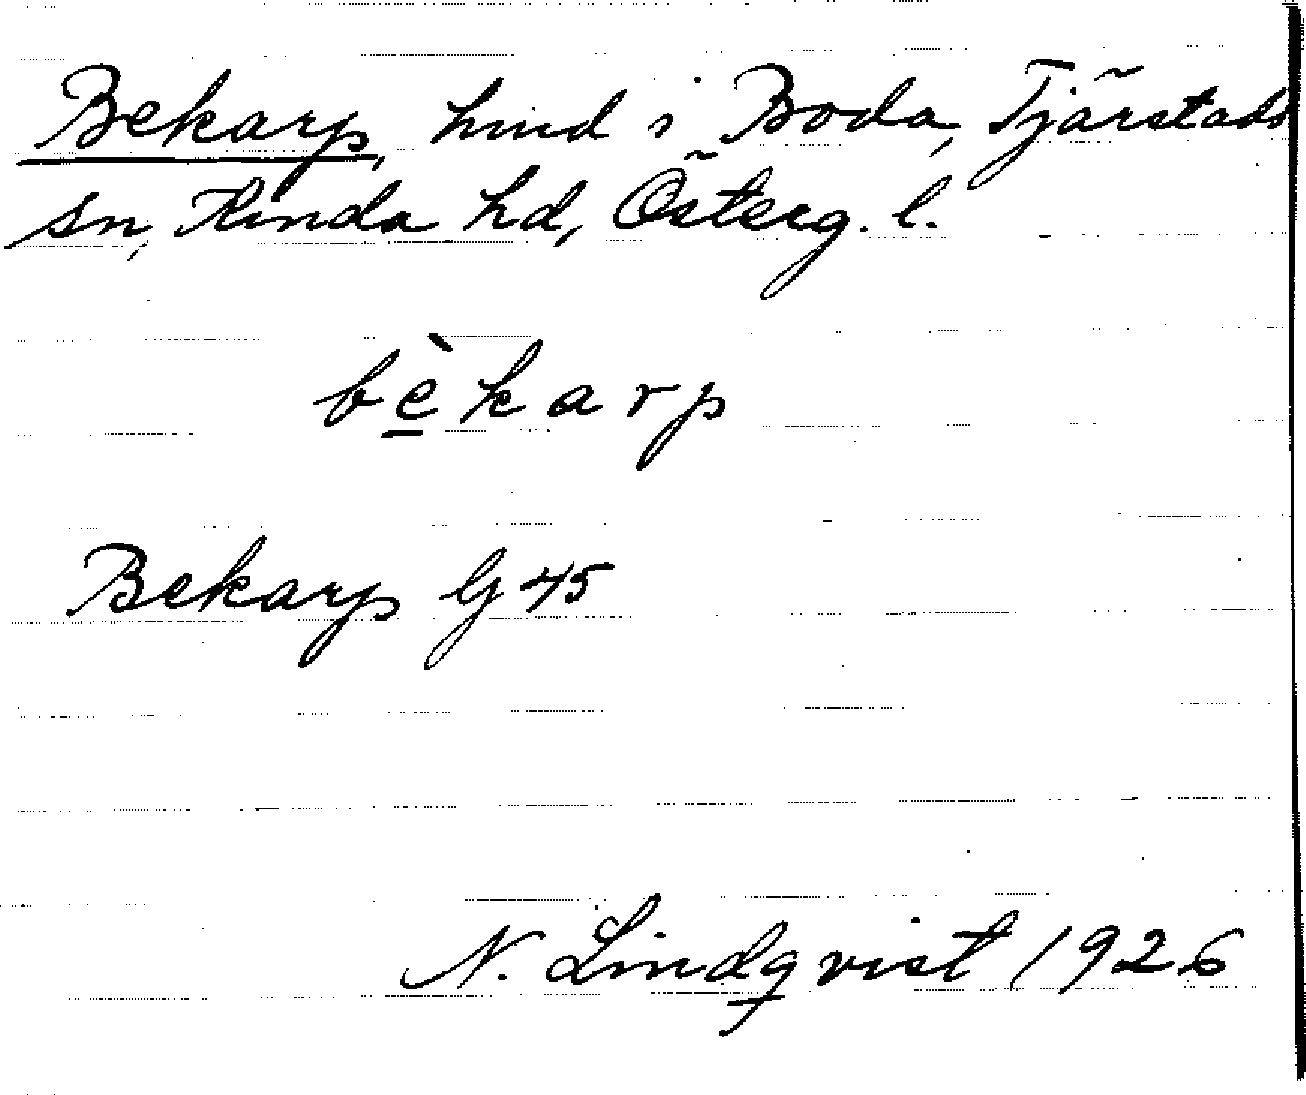 Bekarp, hmd i Boda, Tjärstads
sn, Kinda hd, Österg. l.
bèkarp
Bekarp G 45
N. Lindqvist 1926